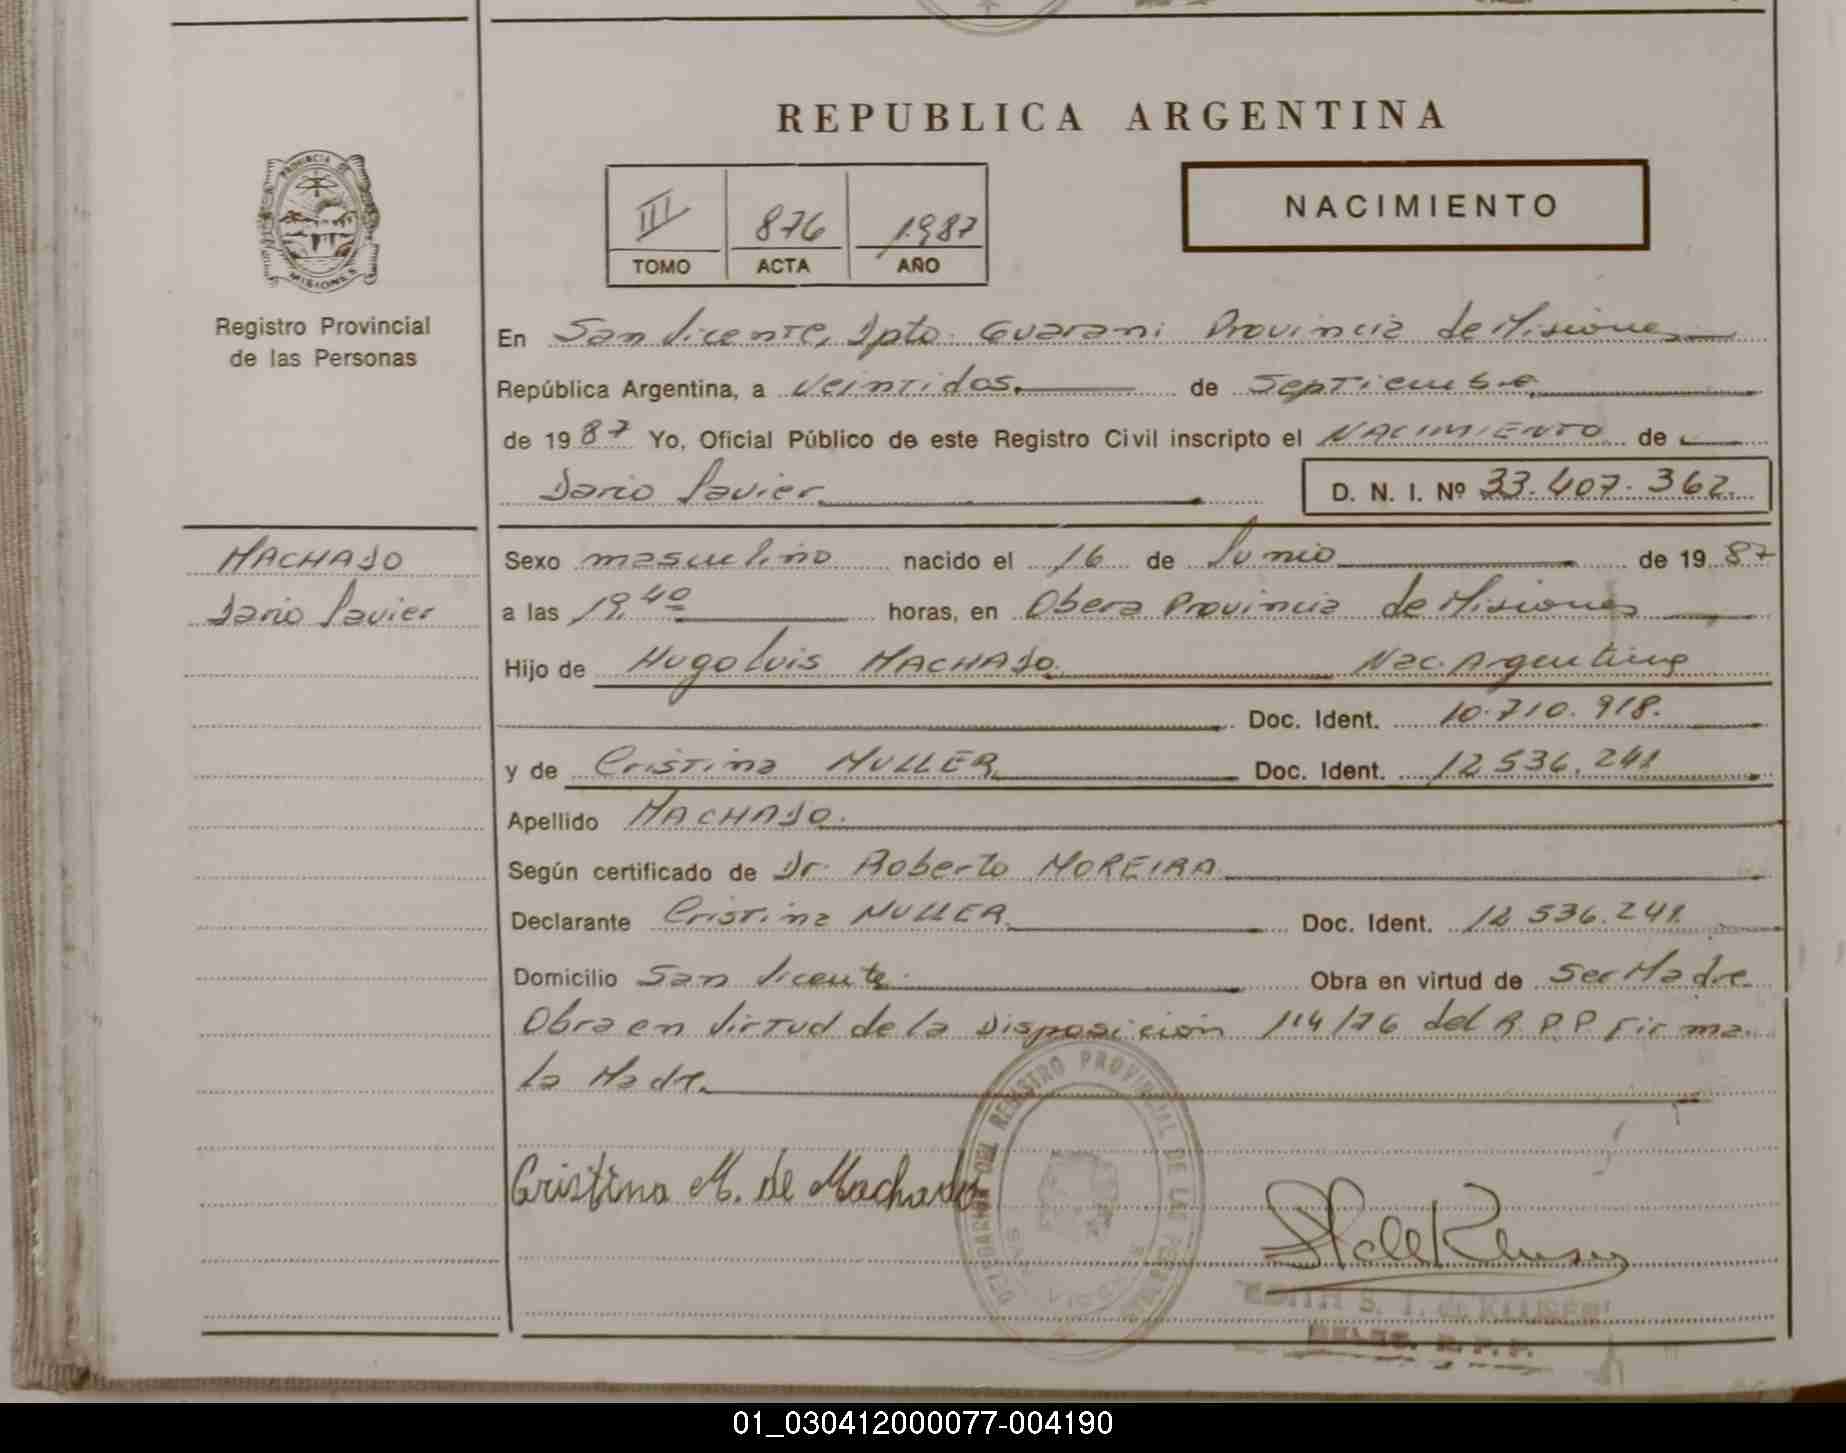 REPUBLICA ARGENTINA
PROVINCIA DE
MISIONES
Registro Provincial
de las Personas
III 876 1987
TOMO ACTA AÑO
NACIMIENTO
En San Vicente, Dpto. Guarani Provincia de Misiones
República Argentina, a Veintidos. de Septiembre
de 1987 Yo, Oficial Público de este Registro Civil inscripto el NACIMIENTO de
Dario Javier D. N. I. Nº 33.407.362.
MACHADO
Dario Javier
Sexo masculino nacido el 16 de Junio de 1987
a las 19,40 horas, en Obera Provincia de Misiones
Hijo de Hugo Luis MACHADO. Nac. Argentina
Doc. Ident. 10.710.918.
y de Cristina MULLER Doc. Ident. 12.536.241
Apellido MACHADO.
Según certificado de Dr. Roberto MOREIRA
Declarante Cristina MULLER Doc. Ident. 12.536.241.
Domicilio San Vicente. Obra en virtud de Ser Madre
Obra en Virtud de la Disposición 114/76 del R.P.P Firma.
la Madre
Cristina M. de Machado
DEL REGISTRO PROVINCIAL DE LAS
EDITH S. T. de
DELEG. R.P.P.
01_030412000077-004190